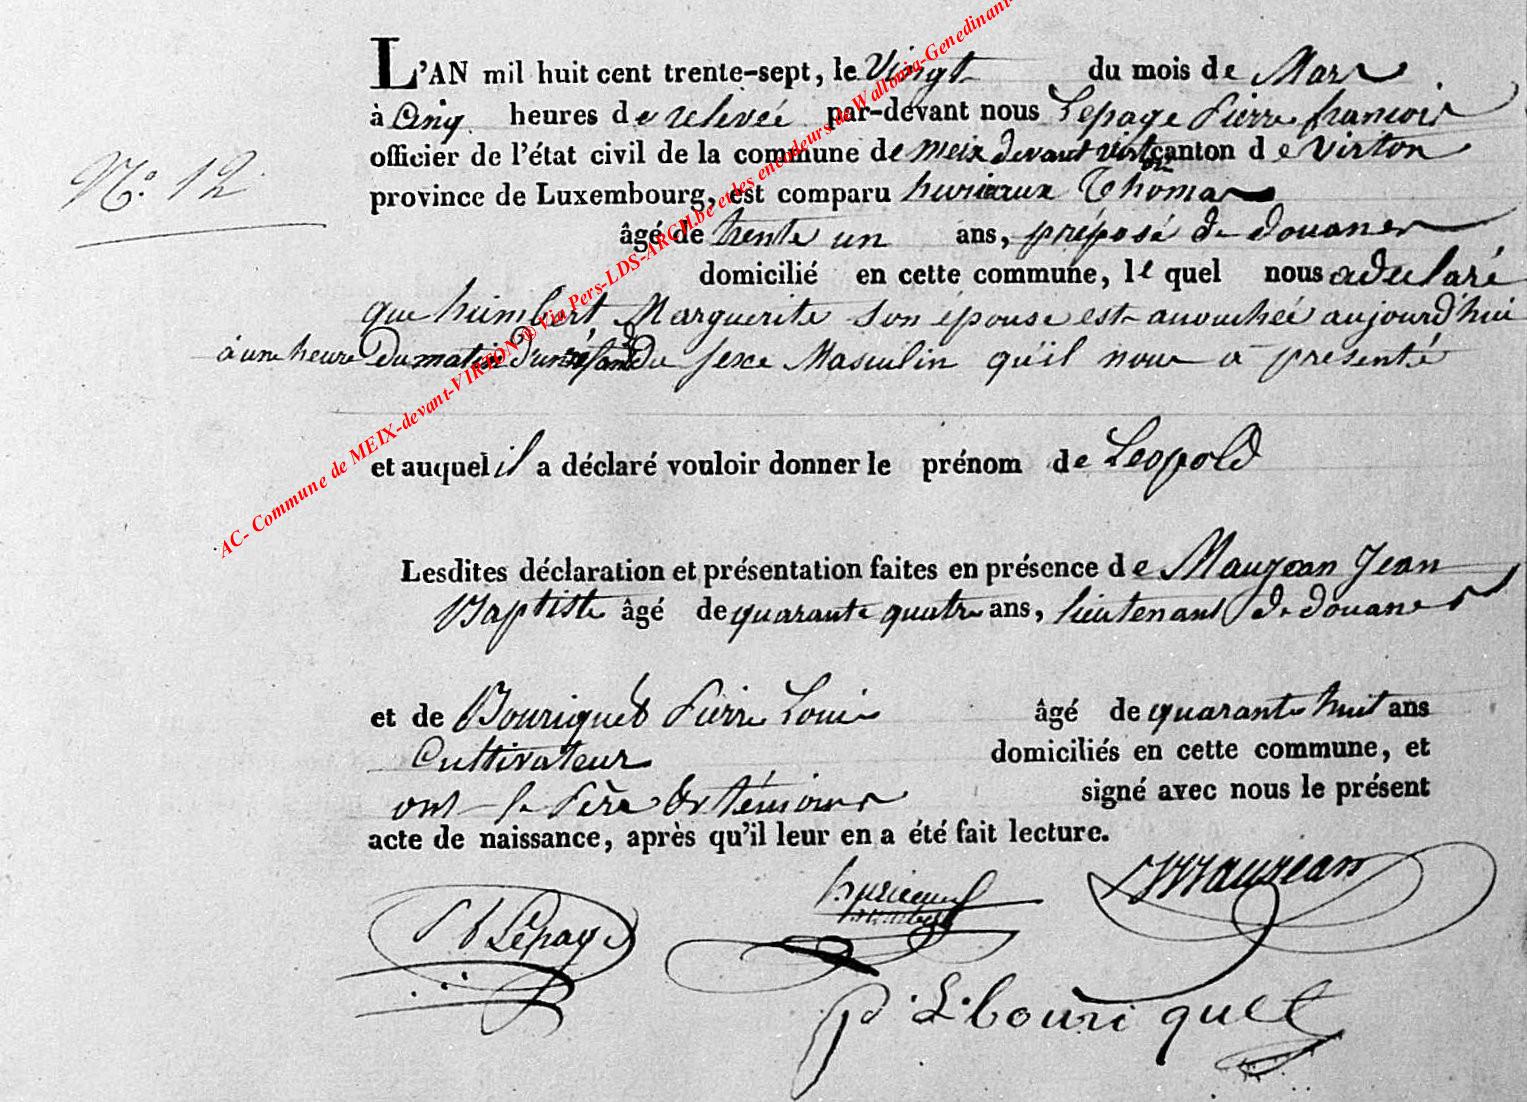 L'AN mil huit cent trente-sept, le Vingt du mois de Mars
à Cinq heures de relevée par-devant nous Lepage Pierre françois
N.º 12
officier de l'état civil de la commune de meix devant virton canton de Virton
province de Luxembourg, est comparu huriaux Thomas
âgé de trente un ans, préposé de douanes
domicilié en cette commune, lequel nous a déclaré
que humbert Marguerite son épouse est accouchée aujourd'hui
à une heure Du matin D'un enfant Du sexe Masculin qu'il nous a présenté
et auquel il a déclaré vouloir donner le prénom de Leopold
Lesdites déclaration et présentation faites en présence de Maujean Jean
Baptiste âgé de quarante quatre ans, lieutenant de douanes
et de Bouriquet Pierre Louis âgé de quarante huit ans
Cultivateur domiciliés en cette commune, et
ont le Père et témoins signé avec nous le présent
acte de naissance, après qu'il leur en a été fait lecture.
Maujean
Lepage
p. L. bouriquet
AC- Commune de MEIX-devant-VIRTON © Via Pers-LDS-ARCH.be et les encodeurs de Wallonia-Genedinant